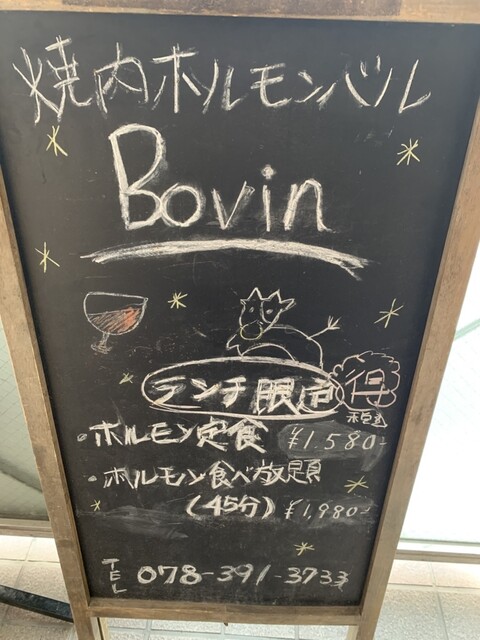 焼肉ホルモンバル
Bovin
ランチ限定 得
税込
・ホルモン定食 ¥1.580-
・ホルモン食べ放題
(45分) ¥1,980-
TEL 078-391-3733